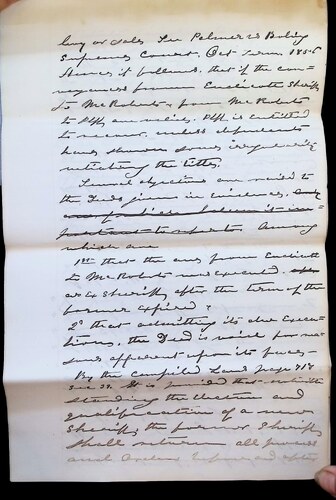 levy or sale. See Palmer vs Boling
Supreme Court, Oct Term 1856
Hence it follows, that if the con-
veyances from Endicott Sheriff
to McRoberts, from McRoberts
to Plff are valid, Plff is entitled
to recover, unless defendants
have shown some irregularity
vitiating the titles.
Several objections are raised to
the Deeds given in evidence.
Among
which are
1st that the one from Endicott
to McRoberts was executed
as ex Sheriff after the term of the
former expired?
2d that admitting its due execu-
tions, the Deed is void for
some apparent upon its face—
By the Compiled Laws page 718
Sec 22. It is provided that notwith
standing the election and
qualification of a new
Sheriff, the former Sheriff
shall return all process
and orders